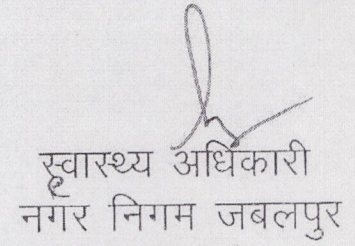 स्वास्थ्य अधिकारी
नगर निगम जबलपुर